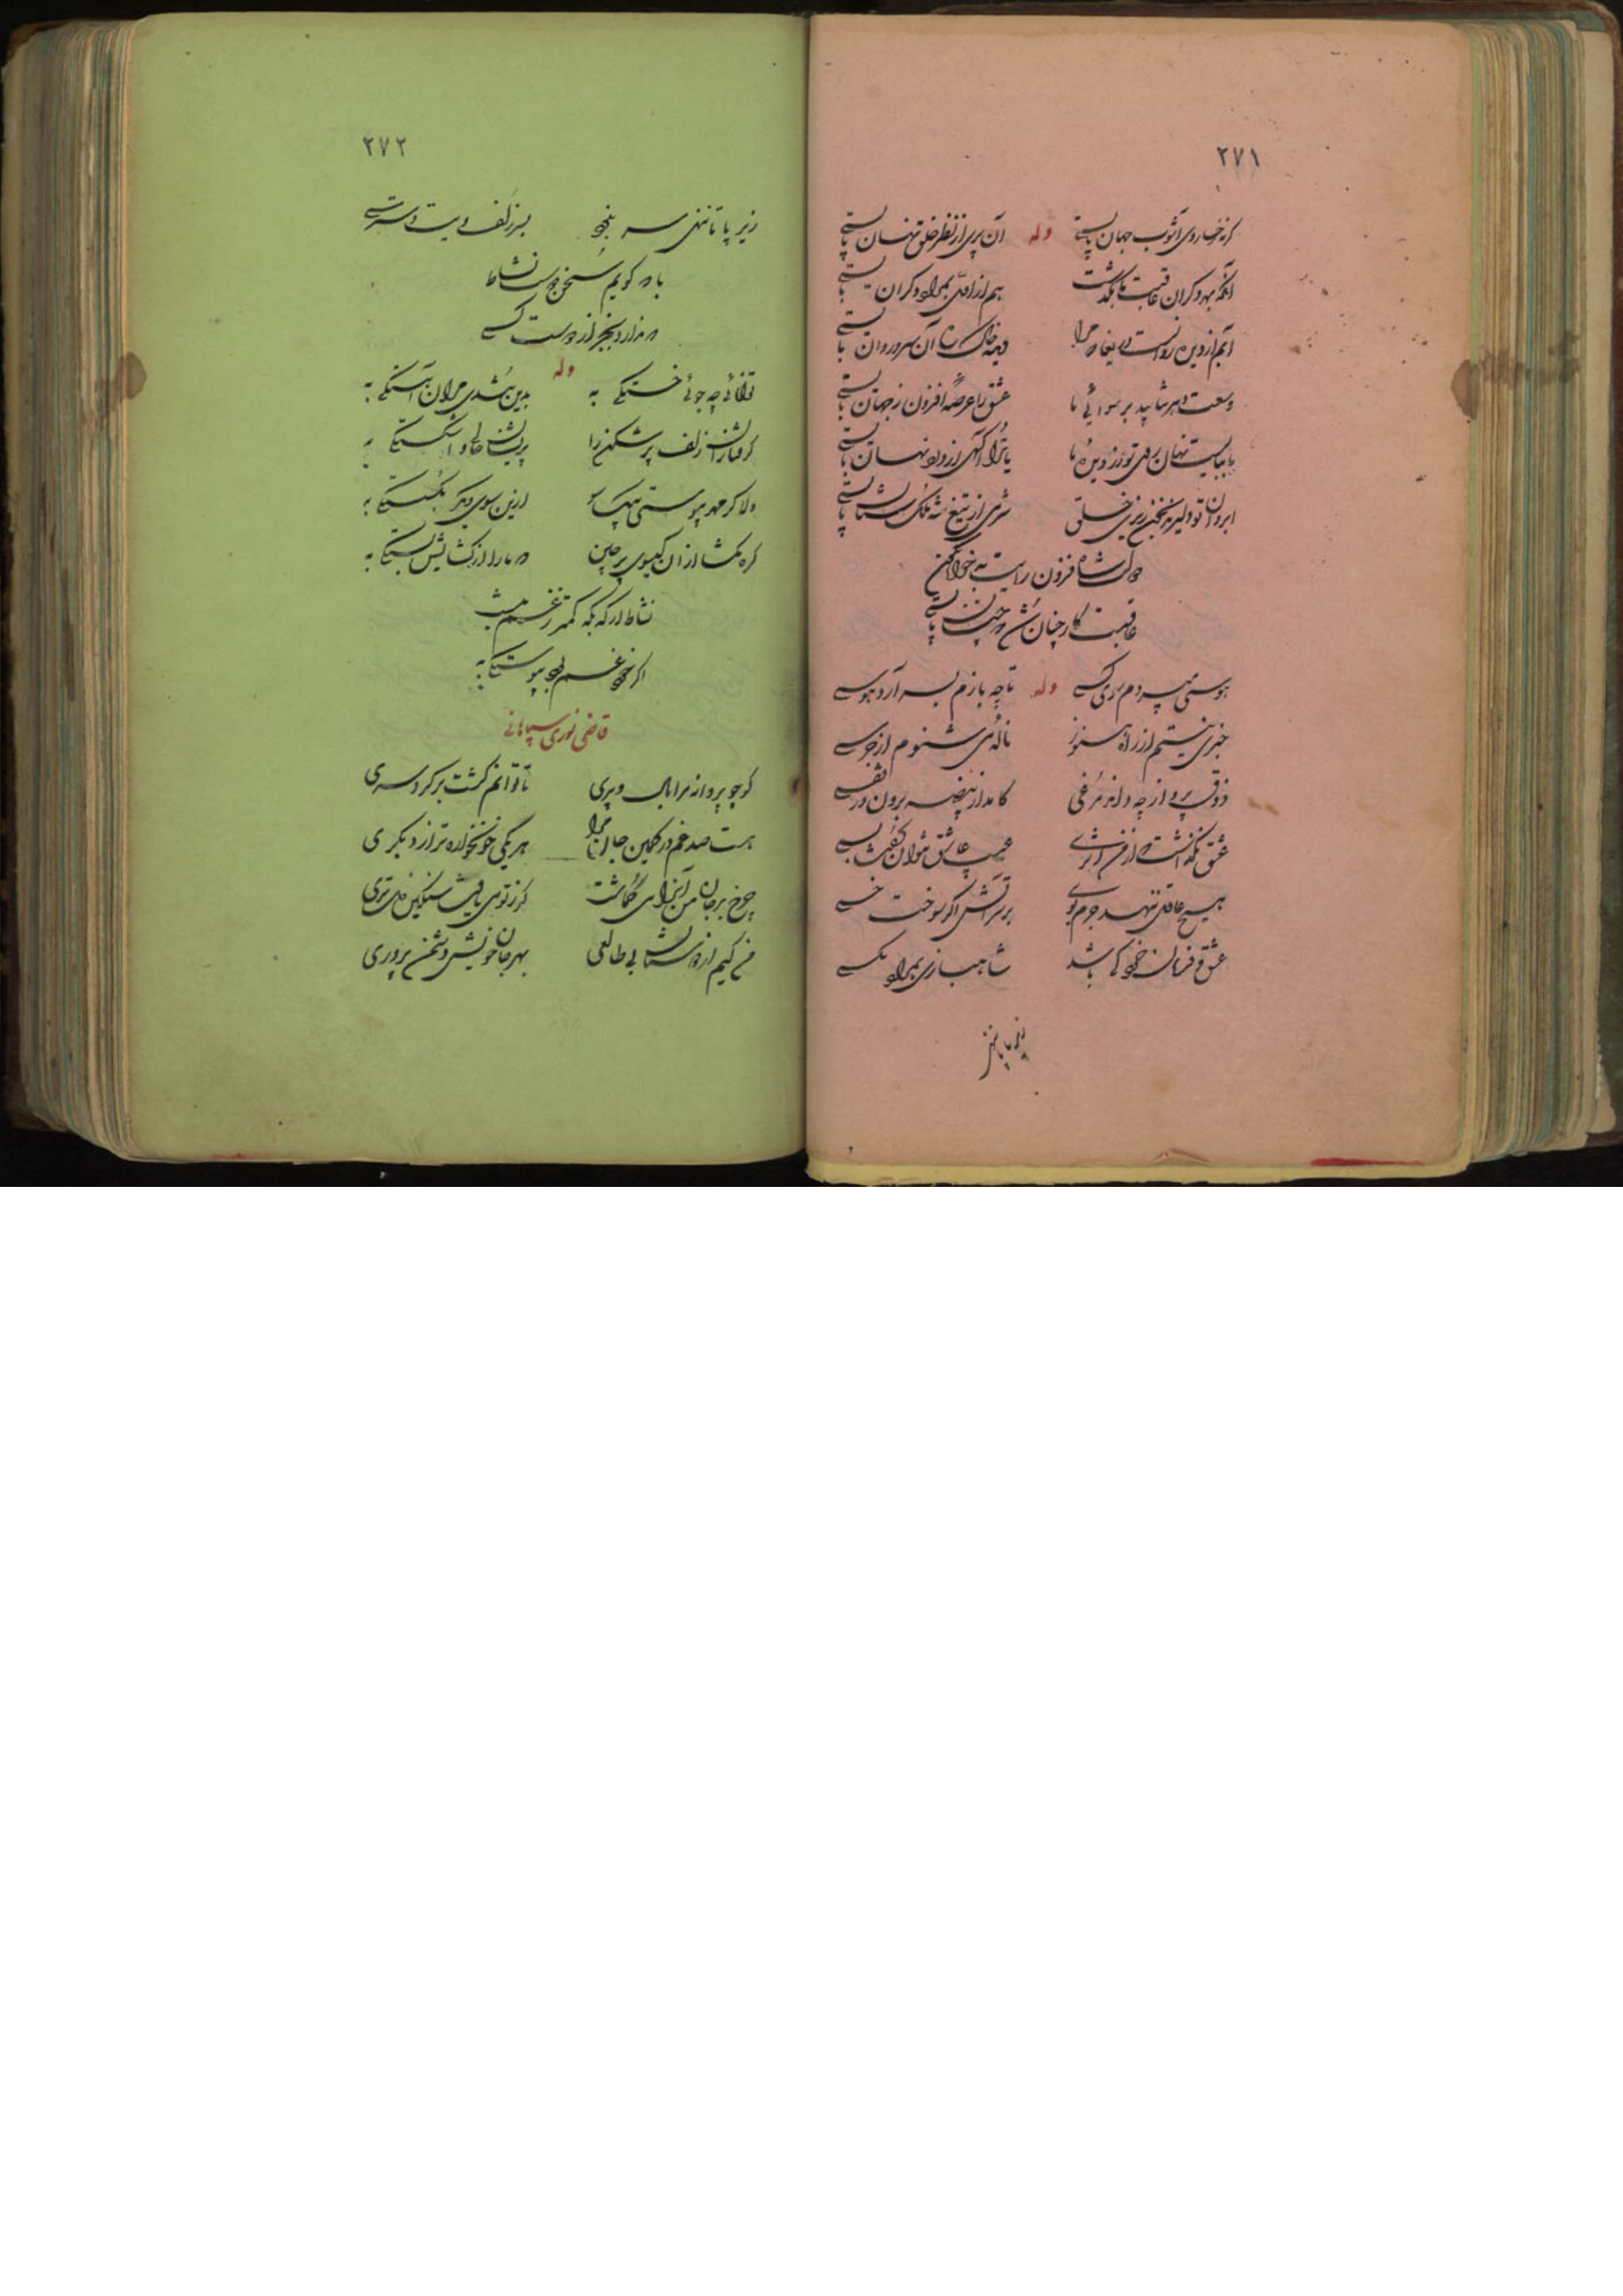 ۲۷۱
گر نه رخساره‌ی آشوب جهان بایستی وله آن پری از نظر خلق نهان بایستی
آنکه بهر دگران عاقبت از ما بگذشت هم از اول به مراد دگران بایستی
آبم از دیده روانست دریغا که مرا دیده خاک ره آن سرو روان بایستی
وسعت دهر نشاید بر سوائی ما عشق را عرصه افزون ز جهان بایستی
یا ببایست نهان روی تو از دیده ما یا ترا آگهی از درد نهان بایستی
ابروان تو دلیرند بخون ریزی خلق شرمی از تیغ شه ملک ستان بایستی
دولت شاه فزون رایت بدخواه نگون
عاقبت کار چنان شد که چنان بایستی
هوسی میبردم سوی کسی وله تا چه بازم بسر آرد هوسی
خبری نیستم از راه هنوز ناله می شنوم از جرسی
ذوق پرواز چه داند مرغی کامد از بیضه برون در قفسی
عشق نگذاشت از من اثری عیب عاشق نتوان گفت بسی
هیچ عاقل ننهد جرم بر او بر سر آتش اگر سوخت خسی
عشق و فرمان خرد کی باشد شاهبازی بمراد مگسی
زیر پا تا ننهی
۲۷۲
زیر پا تا ننهی سر بنخود بسر زلف ویت دسترسی
با که گویم سخن دوست نشاط
که ندارد خبر از دوست کسی
توانائی چه جوئی خستگی به وله بدین تندی مران آهستگی به
گرفتاران زلف پر شکن را پریشان حالی و اشکستگی به
دلا گر مهر پیوستی بیک سو ازین سوی دگر بگسستگی به
گره مگشا از آن گیسوی پرچین که ما را از گشایش بستگی به
نشاط ار گه بگه کمتر ز غم نیست
اگر خود غم بود پیوستگی به
قاضی نوری سپاهانی
کو چو پروانه مرا بالی و پری تا توانم گشت بر گرد سری
هست صد غم در کمین جان مرا هر یکی خونخواره تر از دیگری
چرخ بر جان من آنرا می گماشت گر ز تو می یافت سنگین دل تری
من کیم از دوستان بی طالعی بهر جان خویش دشمن پروری